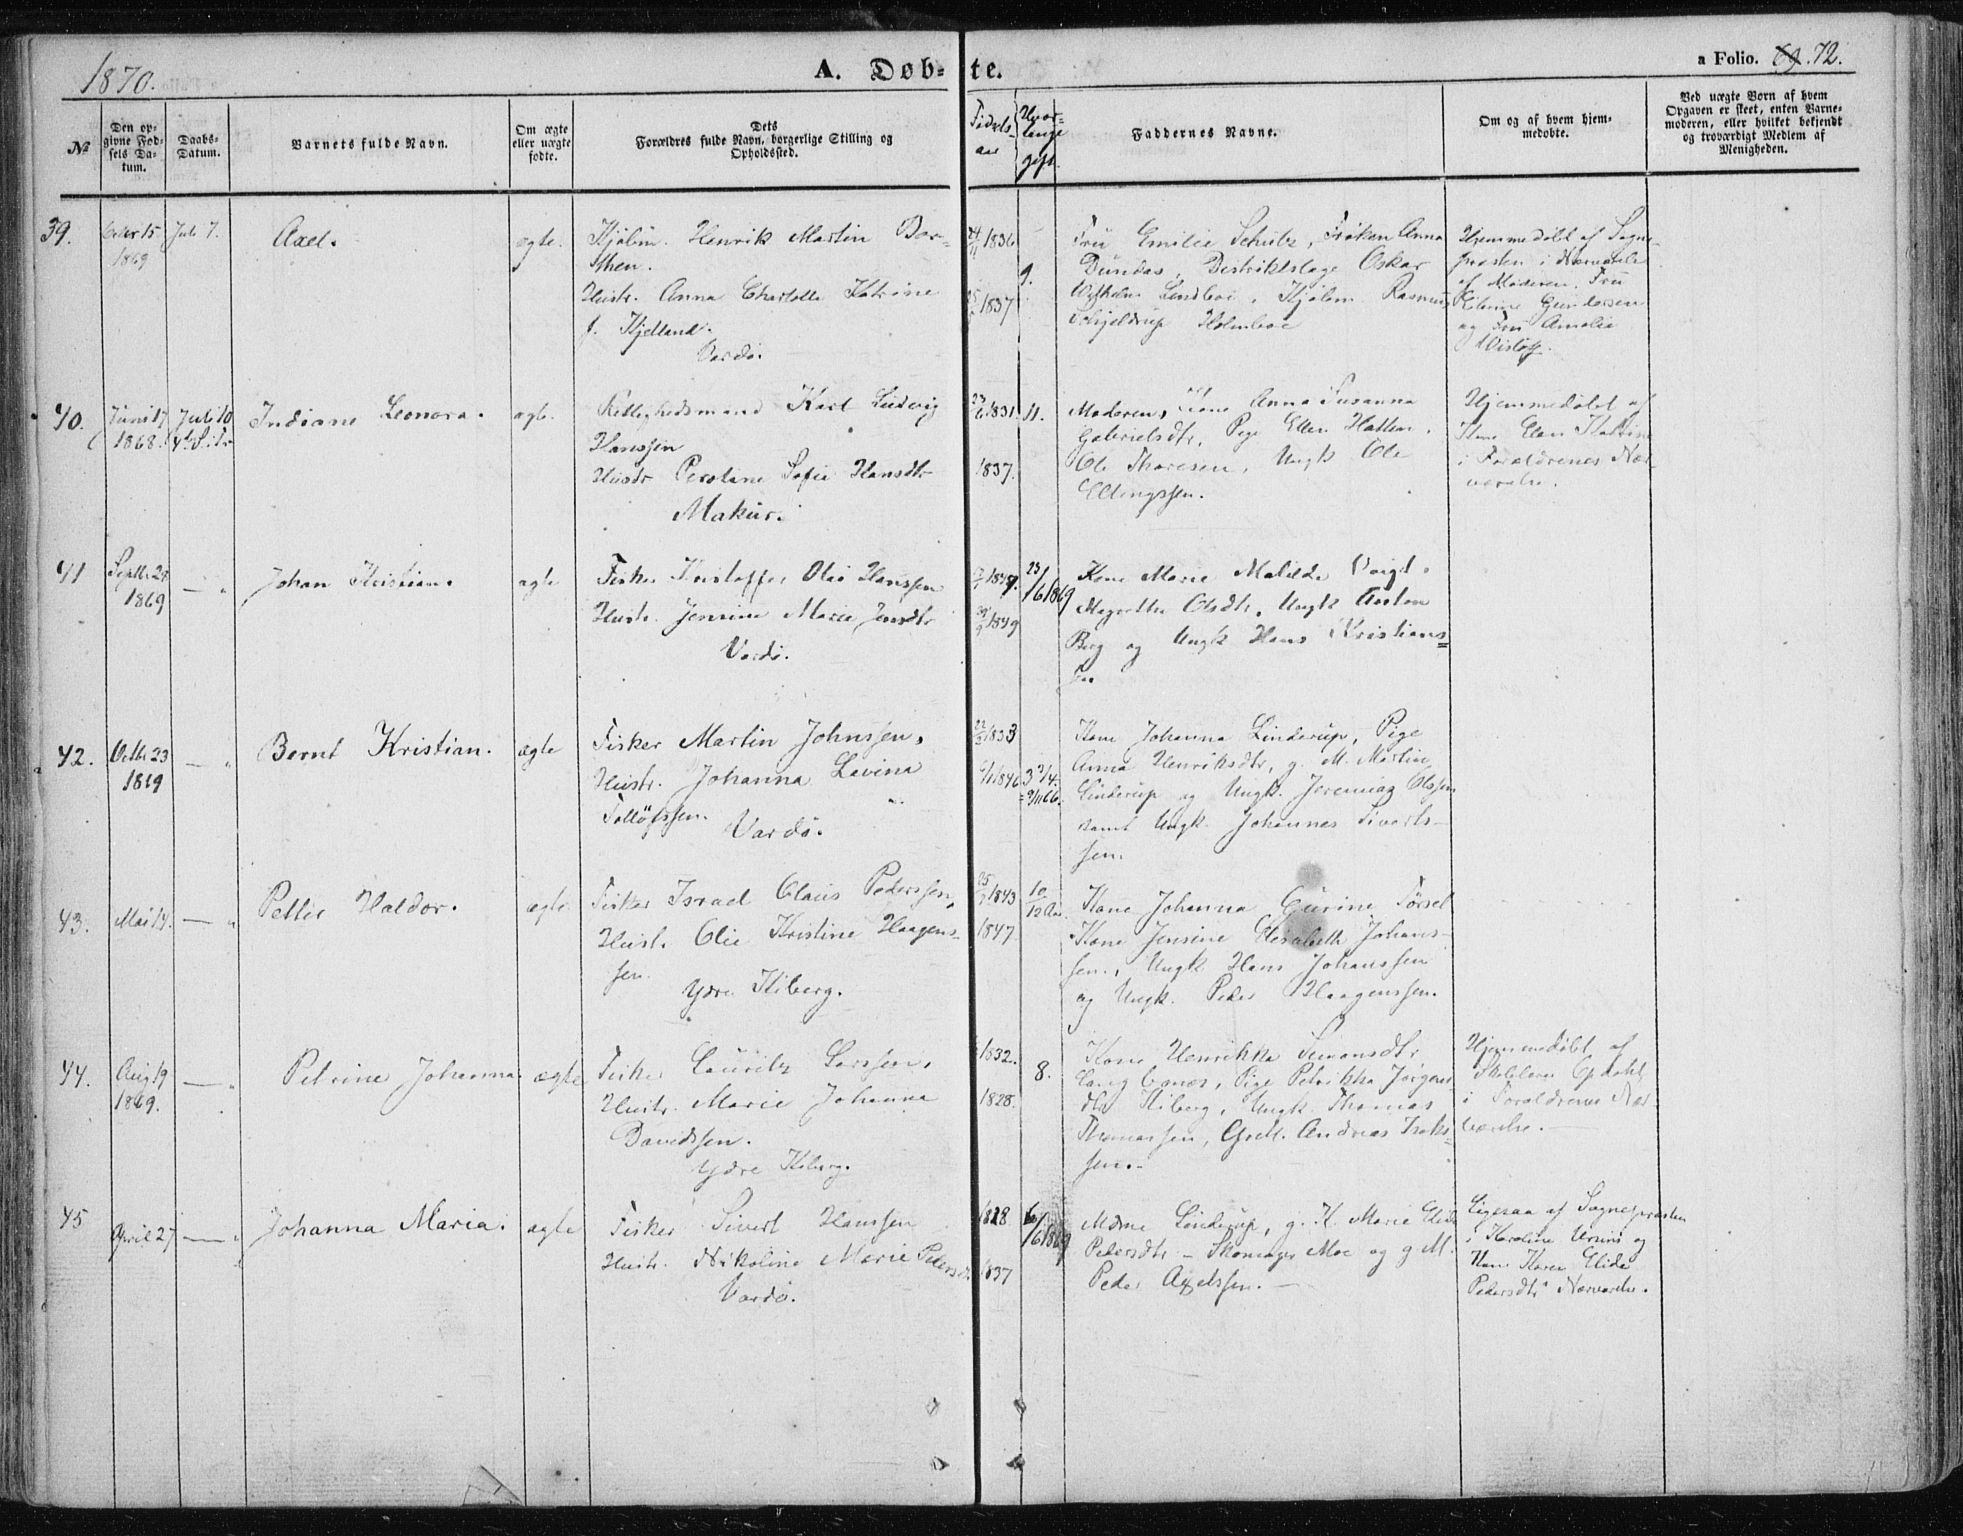 1870.
A. Døb-
te.
a Folio. 69. 72.
№
Den op-
givne Fød-
sels Da-
tum.
Daabs-
Datum.
Barnets fulde Navn.
Om ægte
eller uægte
fødte.
Dets
Forældres fulde Navn, borgerlige Stilling og
Opholdssted.
Fødsels-
aar
Hvor-
længe
gift.
Faddernes Navne.
Om og af hvem hjem-
medøbte.
Ved uægte Born af hvem
Opgaven er skeet, enten Barne-
moderen, eller hvilket bekjendt
og troværdigt Medlem af
Menigheden.
39.
15
1869
Juli 7.
Axel.
ægte.
Kjøbm. Henrik Martin Bar-
then.
Hustr. Anna Charlotte Katrine
f. Kjelland.
Vardö.
24/11 1836
1837
9.
Fru Emilie Schulz, Frøken Anna
Dündas, Distriktslæge Oskar
Wilhelm Lindboe, Kjøbm Rasmus
Schjeldrup Holmboe
Hjemmedøbt af Sogne-
præsten i Nærværelse
af Moderen, Fru
Gundersen
og Fru Amalie
40.
Juni 17
1868.
Juli 10
4de S. e. Tr
Indiane Leonora.
ægte.
Rettighedsmand Karl Ludvig
Hanssen
Hustr Peroline Sofie Hansdtr
Makur.
1831
1837.
11.
Moderen, Kone Anna Susanna
Gabrielsdtr, Pige Ellen Hatten,
Ole Thoresen, Ungk Ole
Ellingssen.
Hjemmedøbt af
Kone Elen Katrine
i Forældrenes Nær-
værelse.
41
Septbr 28
1869
— "
Johan Kristian.
ægte
Fisker Kristoffer Olai Hanssen
Hustr. Jensine Marie Jensdtr
Vardö.
1847.
1849
23/6 1869
Kone Marie Matilde Voigt.
Magrethe Olsdtr, Ungk Anton
Berg og Ungk Hans Kristians=
sen
42.
Octbr 23
1869
— "
Bernt Kristian.
ægte
Fisker Martin Johnssen,
Hustr. Johanna Lavina
Tollöfssen.
Vardö.
22/2 1833
1846
3 3/4.
Kone Johanna Linderup, Pige
Anna Henriksdtr, g. M. Martin
Linderup og Ungk. Jeremias Olssen
samt Ungk. Johannes Siverts-
sen.
43.
Mai 14.
— "
Petter Haldor.
ægte
Fisker Israel Claus Pederssen,
Hustr. Olie Kristine Haagens-
sen.
Ydre Kiberg.
25/7 1843
1847.
10/12 Aar
Kone Johanna Gurine Forsel
Kone Jensine Elisabeth Johans-
sen, Ungk Hans Johanssen
og Ungk. Peder Haagenssen.
44.
Aug 19
1869.
— "
Petrine Johanna.
ægte
Fisker Lauritz Larssen,
Hustr. Marie Johanna
Davidssen.
Ydre Kiberg.
1832.
1828.
8.
Kone Henrikka Simonsdtr
Langbunes, Pige Petrikka Jörgens
dtr Kiberg, Ungk. Thomas
Thomassen, Andreas Isaks-
sen.
Hjemmedøbt af
Skolelærer Opdahl
i Forældrenes Nær-
værelse.
45
April 27
— "
Johanna Maria.
ægte
Fisker Sivert Hanssen
Hustr. Nikoline Marie Pedersdtr
Vardö.
1828
1837
6/6 1869
Mdme Linderup, g. K. Marie Elide
Pedersdtr – Skomager Moe og g M.
Peder Axelssen.
Ligesaa af Sognepræsten
i Karoline og
Kone Karen Elide
Pedersdtr Nærværelse.